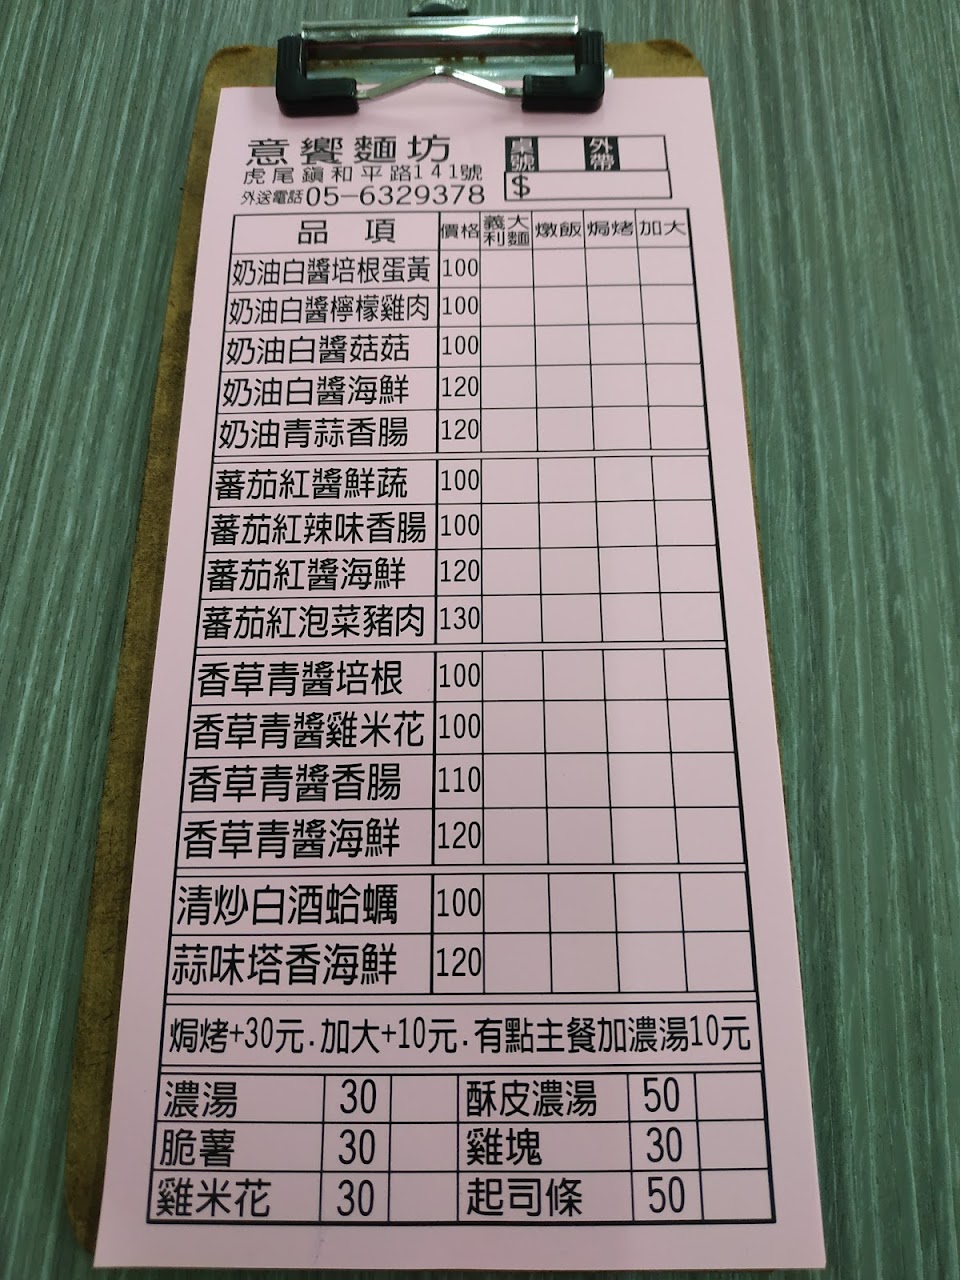 意饗麵坊
虎尾鎮和平路141號
外送電話05-6329378
桌號 外帶
$
品項 價格 義大利麵 燉飯 焗烤 加大
奶油白醬培根蛋黃 100
奶油白醬檸檬雞肉 100
奶油白醬菇菇 100
奶油白醬海鮮 120
奶油青蒜香腸 120
蕃茄紅醬鮮蔬 100
蕃茄紅辣味香腸 100
蕃茄紅醬海鮮 120
蕃茄紅泡菜豬肉 130
香草青醬培根 100
香草青醬雞米花 100
香草青醬香腸 110
香草青醬海鮮 120
清炒白酒蛤蠣 100
蒜味塔香海鮮 120
焗烤+30元.加大+10元.有點主餐加濃湯10元
濃湯 30 酥皮濃湯 50
脆薯 30 雞塊 30
雞米花 30 起司條 50